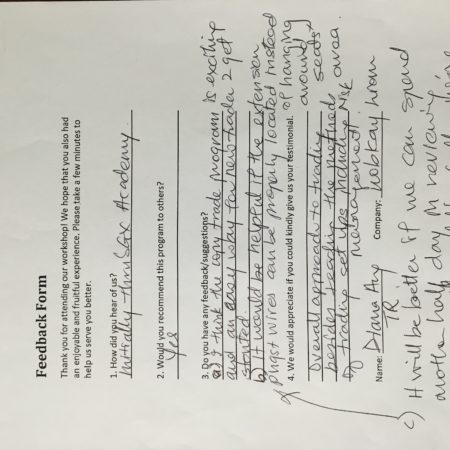 Feedback Form
Thank you for attending our workshop! We hope that you also had
an enjoyable and fruitful experience. Please take a few minutes to
help us serve you better.
1. How did you hear of us?
Initially thru SGX Academy
2. Would you recommend this program to others?
Yes
3. Do you have any feedback/suggestions?
a) I think the copy trade program is exciting
and an easy way for new trader 2 get
started.
b) It would be helpful if the extension
plugs & wires can be properly located instead
of hanging
around
seats
area.
4. We would appreciate if you could kindly give us your testimonial.
Overall approach to trading
besides teaching the methods
of trading set ups including risk
management.
Name: Diana Ang
Company:
c) It will be better if we can spend
another half day in reviewing